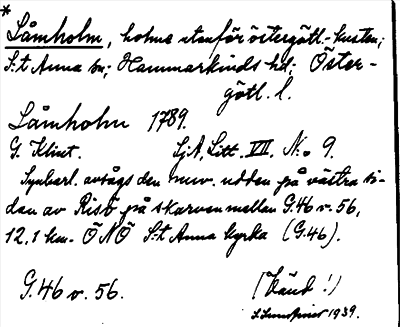 *
Låmholm, holme utanför östergötl.-kusten;
S:t Anna sn; Hammarkinds hd; Öster-
götl. l.
Låmholm 1789.
G. Klint. Sj.A, Litt. VII. N:o 9.
Synbarl. avsågs den nuv. udden på västra si-
dan av Risö på skarven mellan G.46 v. 56,
12,1 km. ÖNÖ S:t Anna kyrka (G.46).
G.46 v. 56. (Känt!)
1939.